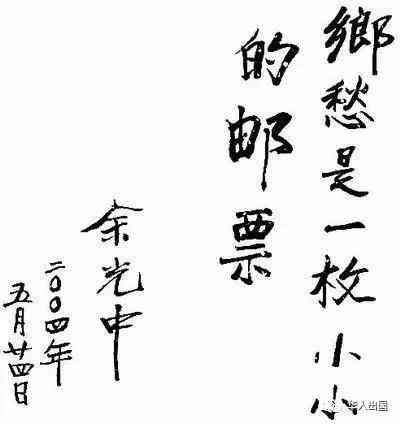 鄉愁是一枚小小
的邮票
余光中
二〇〇四年
五月廿四日
华人出国